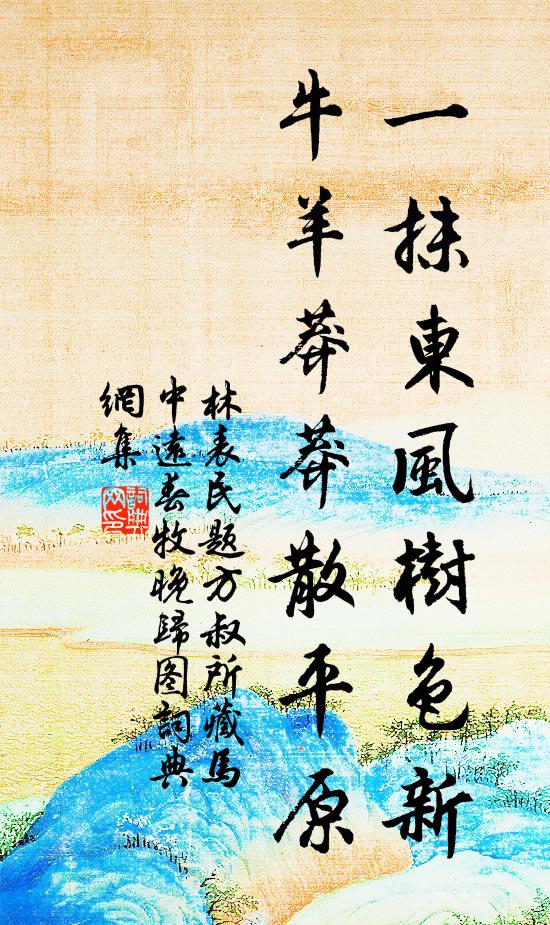 一抹東風樹色新
牛羊莽莽散平原
林表民題方叔所藏馬
中遠春牧晚歸图詞典
網集
詞典
网印